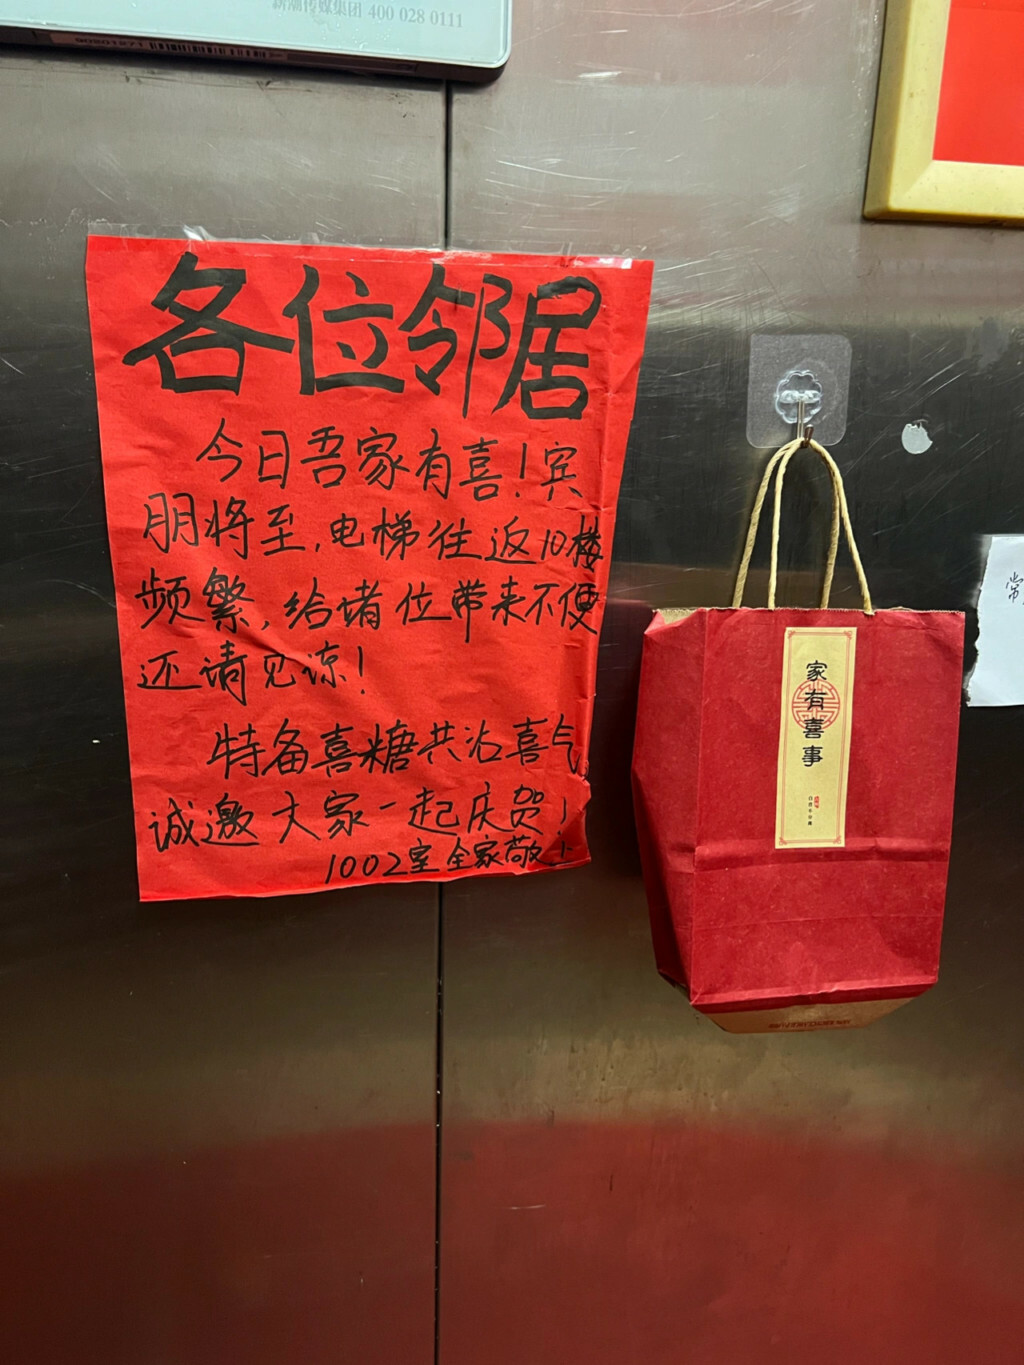 新潮传媒集团 400 028 0111
各位邻居
今日吾家有喜！宾
朋将至，电梯往返10楼
频繁，给堵位带来不便
还请见谅！
特备喜糖共沾喜气
诚邀大家一起庆贺！
1002室 全家敬上
家有喜事
常